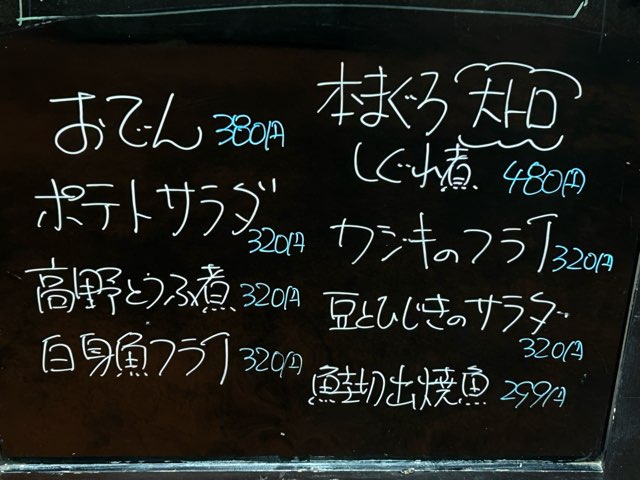 おでん 380円
ポテトサラダ
320円
高野とうふ煮 320円
白身魚フライ 320円
本まぐろ 大トロ
しぐれ煮 480円
カジキのフライ 320円
豆とひじきのサラダ
320円
鮭切出焼魚 299円